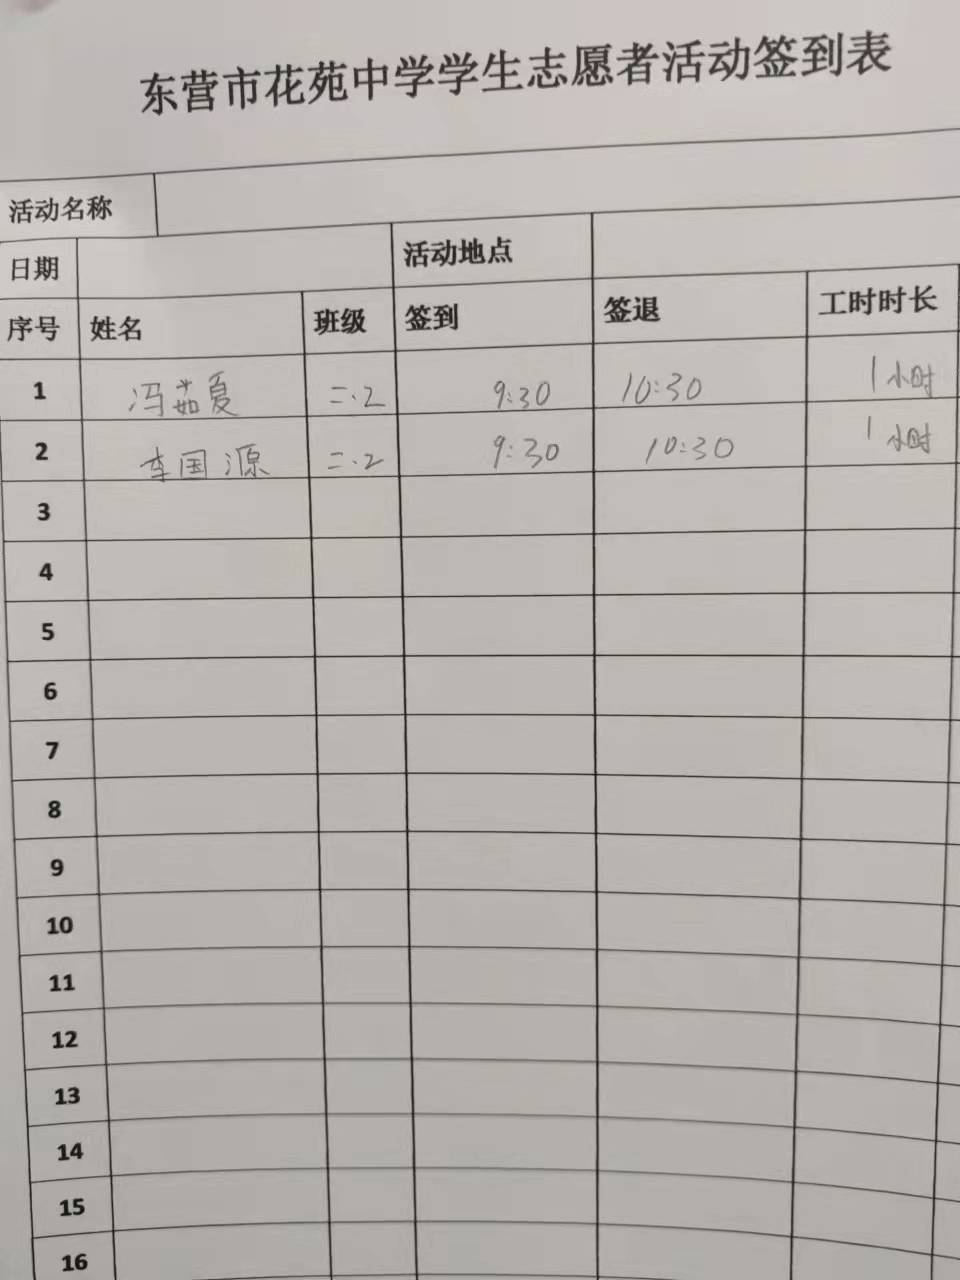 东营市花苑中学学生志愿者活动签到表
活动名称
日期 活动地点
序号 姓名 班级 签到 签退 工时时长
1 冯茹夏 二.2 9:30 10:30 1小时
2 李国源 二.2 9:30 10:30 1小时
3
4
5
6
7
8
9
10
11
12
13
14
15
16